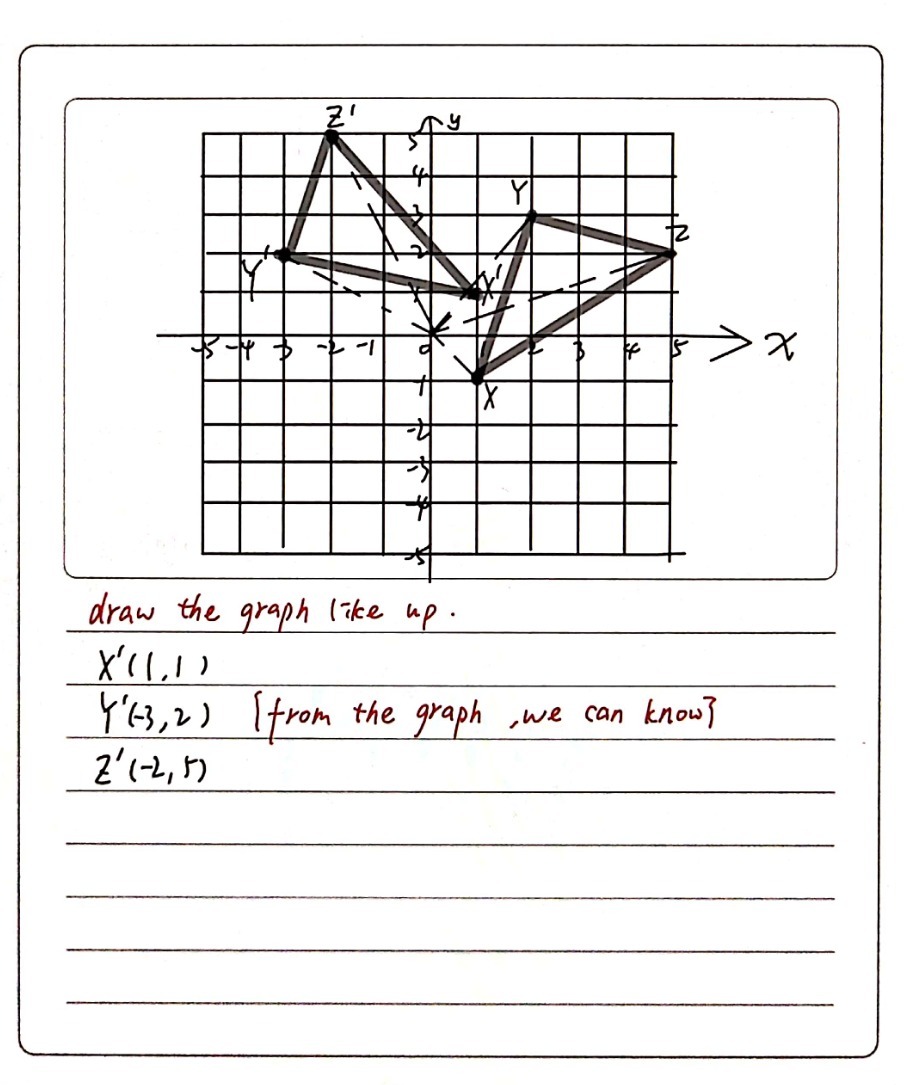 Z' y
5
4
Y
3
Z
2
Y' X'
-5 -4 -3 -2 -1 0 2 3 4 5 X
1
X
-2
-3
-4
-5
draw the graph like up.
X'(1,1)
Y'(-3,2) {from the graph ,we can know}
Z'(-2,5)